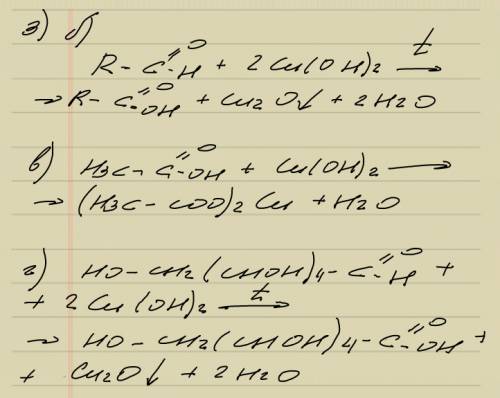 3) б)
R - C =O -H + 2 Cu(OH)2 t→
→ R - C =O -OH + Cu2O↓ + 2H2O
в) H3C - C =O -OH + Cu(OH)2 →
→ (H3C - COO)2 Cu + H2O
г) HO - CH2 (CHOH)4 - C =O -H +
+ 2 Cu (OH)2 t→
→ HO - CH2 (CHOH)4 - C =O -OH +
+ Cu2O↓ + 2H2O